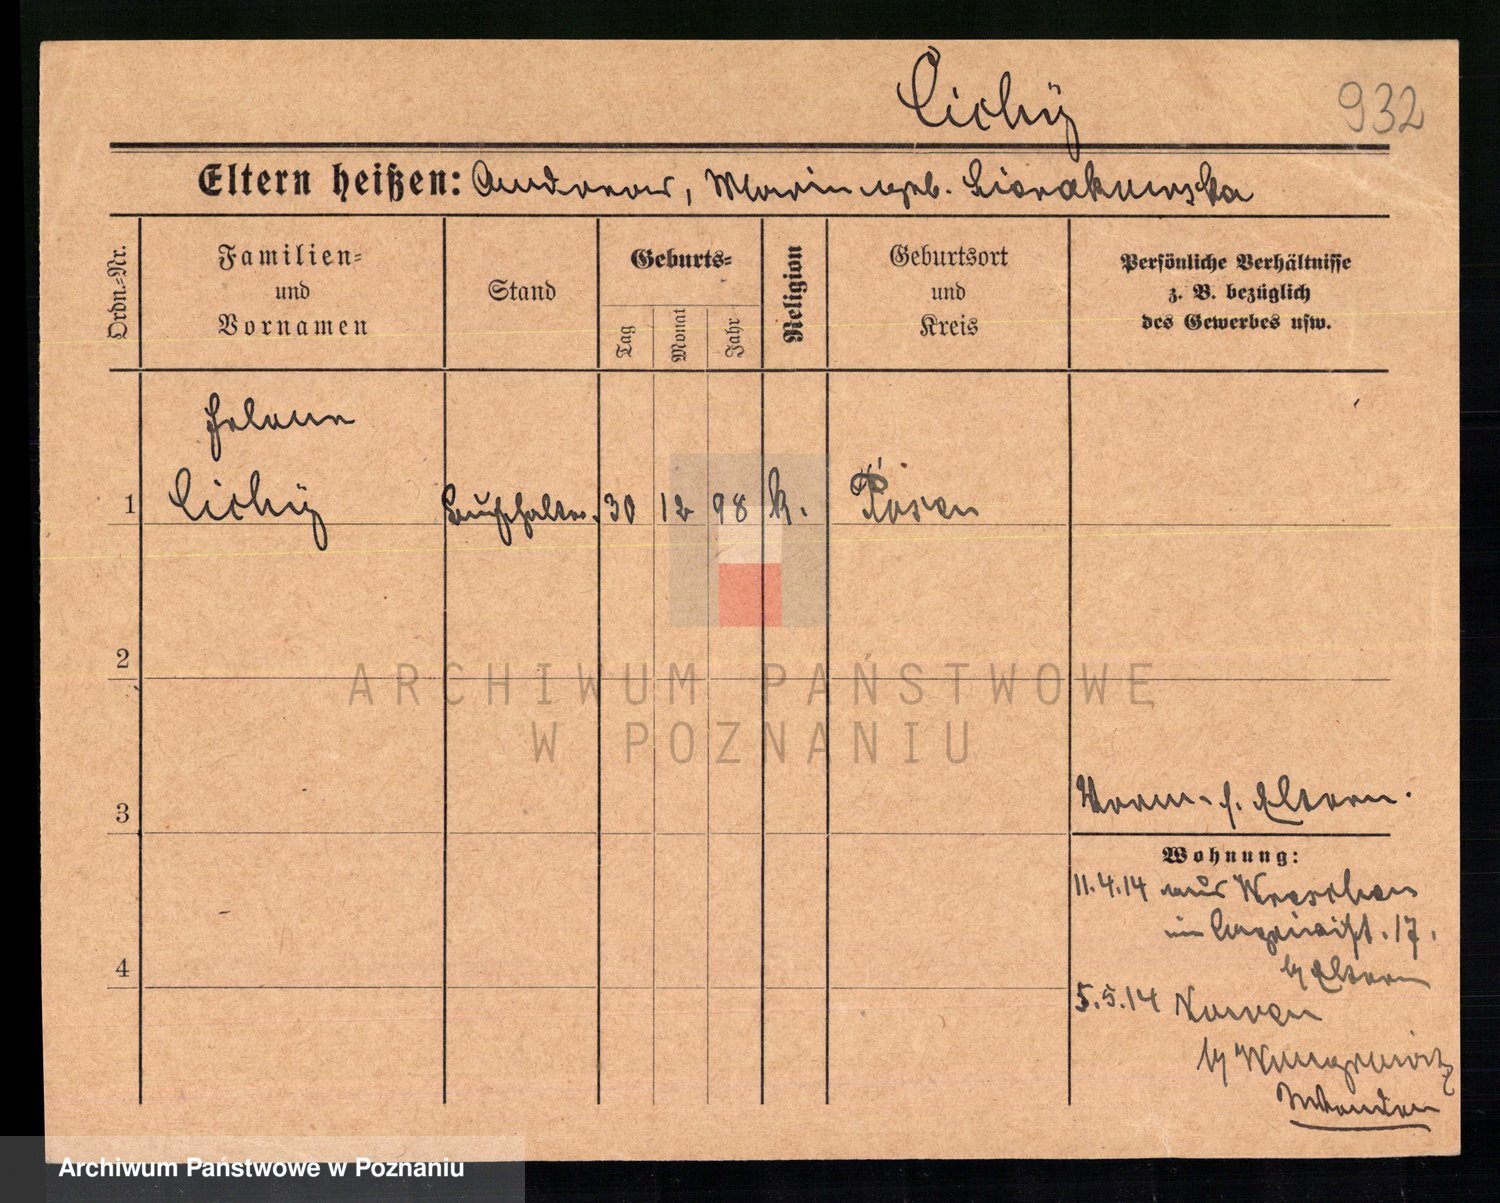 Cichÿ
932
Eltern heißen: Andreas, Marie geb. Sierakowska
Ordn.-Nr.
Familien-
und
Vornamen
Stand
Geburts-
Tag
Monat
Jahr
Religion
Geburtsort
und
Kreis
Persönliche Verhältnisse
z. B. bezüglich
des Gewerbes usw.
Helene
1 Cichÿ Buchhaltr. 30 12 98 k. Posen
2
3
4
ARCHIWUM PAŃSTWOWE
W POZNANIU
Verm. s. Eltern.
Wohnung:
11.4.14 aus Wreschen
17.
b/ Eltern
5.5.14
b/ Wongrowitz
Archiwum Państwowe w Poznaniu